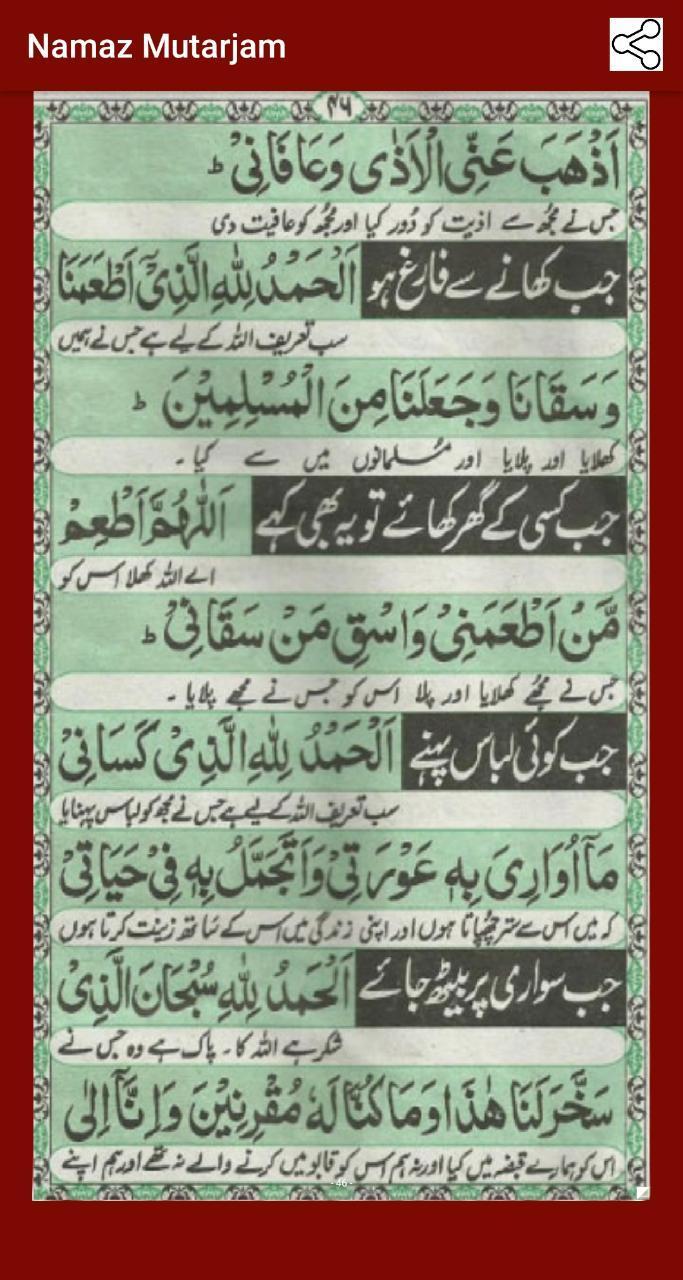 Namaz Mutarjam
۴۶
اَذْهَبَ عَنِّی الْاَذٰی وَعَافَانِیْ ؕ
جس نے مجھ سے اذیت کو دُور کیا اور مجھ کو عافیت دی
جب کھانے سے فارغ ہو اَلْحَمْدُ لِلّٰهِ الَّذِیْۤ اَطْعَمَنَا
سب تعریف اللہ کے لیے ہے جس نے ہمیں
وَسَقَانَا وَجَعَلَنَا مِنَ الْمُسْلِمِیْنَ ؕ
کھلایا اور پلایا اور مسلمانوں میں سے کیا ۔
جب کسی کے گھر کھائے تو یہ بھی کہے اَللّٰهُمَّ اَطْعِمْ
اے اللہ کھلا اس کو
مَّنْ اَطْعَمَنِیْ وَاسْقِ مَنْ سَقَانِیْ ؕ
جس نے مجھے کھلایا اور پلا اس کو جس نے مجھے پلایا ۔
جب کوئی لباس پہنے اَلْحَمْدُ لِلّٰهِ الَّذِیْ کَسَانِیْ
سب تعریف اللہ کے لیے ہے جس نے مجھ کو لباس پہنایا
مَاۤ اُوَارِیَ بِهٖ عَوْرَتِیْ وَاَتَجَمَّلُ بِهٖ فِیْ حَیَاتِیْ
کہ میں اس سے ستر چھپاتا ہوں اور اپنی زندگی میں اس کے ساتھ زینت کرتا ہوں
جب سواری پر بیٹھ جائے اَلْحَمْدُ لِلّٰهِ سُبْحَانَ الَّذِیْ
شکر ہے اللہ کا ۔ پاک ہے وہ جس نے
سَخَّرَ لَنَا هٰذَا وَمَا کُنَّا لَهٗ مُقْرِنِیْنَ وَاِنَّاۤ اِلٰی
اس کو ہمارے قبضہ میں کیا اور نہ ہم اس کو قابو میں کرنے والے نہ تھے اور ہم اپنے
- 46 -